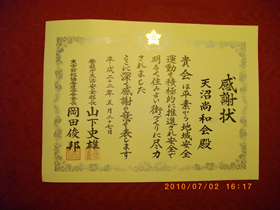 感謝状
天沼尚和会殿
貴会は平素から地域安全
運動を積極的に推進され安全で
明るく住みよい街づくりに尽力
されました
ここに深く感謝の意を表します
平成二十二年五月二十七日
警視庁生活安全部長 山下史雄
東京防犯協会連合会会長 岡田俊邦
2010/07/02 16:17